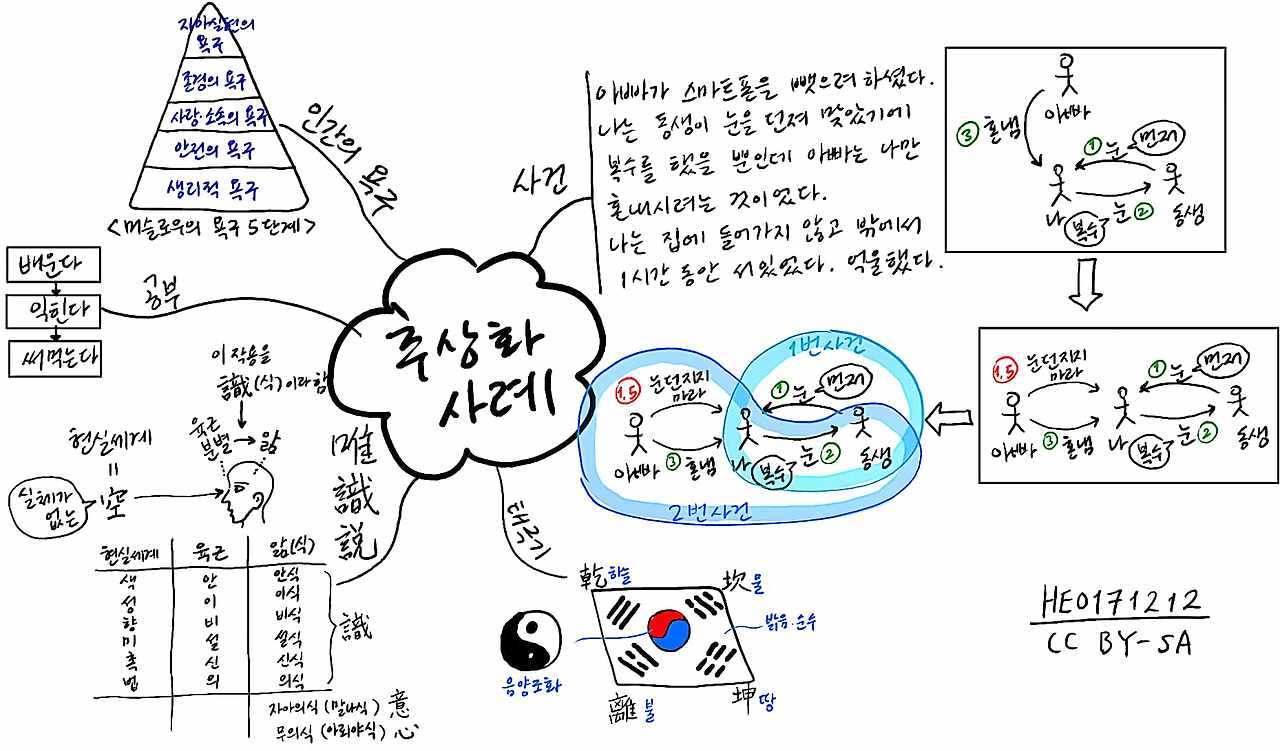 추상화
사례
인간의 욕구
자아실현의
욕구
존경의 욕구
사랑·소속의 욕구
안전의 욕구
생리적 욕구
<머슬로우의 욕구 5단계>
공부
배운다
익힌다
써먹는다
사건
아빠가 스마트폰을 뺏으려 하셨다.
나는 동생이 눈을 던져 맞았기에
복수를 했을 뿐인데 아빠는 나만
혼내시려는 것이었다.
나는 집에 들어가지 않고 밖에서
1시간 동안 서있었다. 억울했다.
아빠
③ 혼냄
① 눈 먼저
나
복수
눈 ②
동생
1.5
눈던지지
마라
① 눈 먼저
아빠
③ 혼냄
나
복수
눈 ②
동생
1번사건
1.5
눈던지지
마라
① 눈 먼저
아빠
③ 혼냄
나
복수
눈 ②
동생
2번사건
태극기
乾 하늘
坎 물
밝음·순수
음양조화
離 불
坤 땅
唯識説
이 작용을
識(식)이라함
육근
분별 → 앎
현실세계
=
실체가
없는
空
현실세계 육근 앎(식)
색 안 안식
성 이 이식
향 비 비식
미 설 설식
촉 신 신식
법 의 의식
識
자아의식 (말나식) 意
무의식 (아뢰야식) 心
HE0171212
CC BY-SA